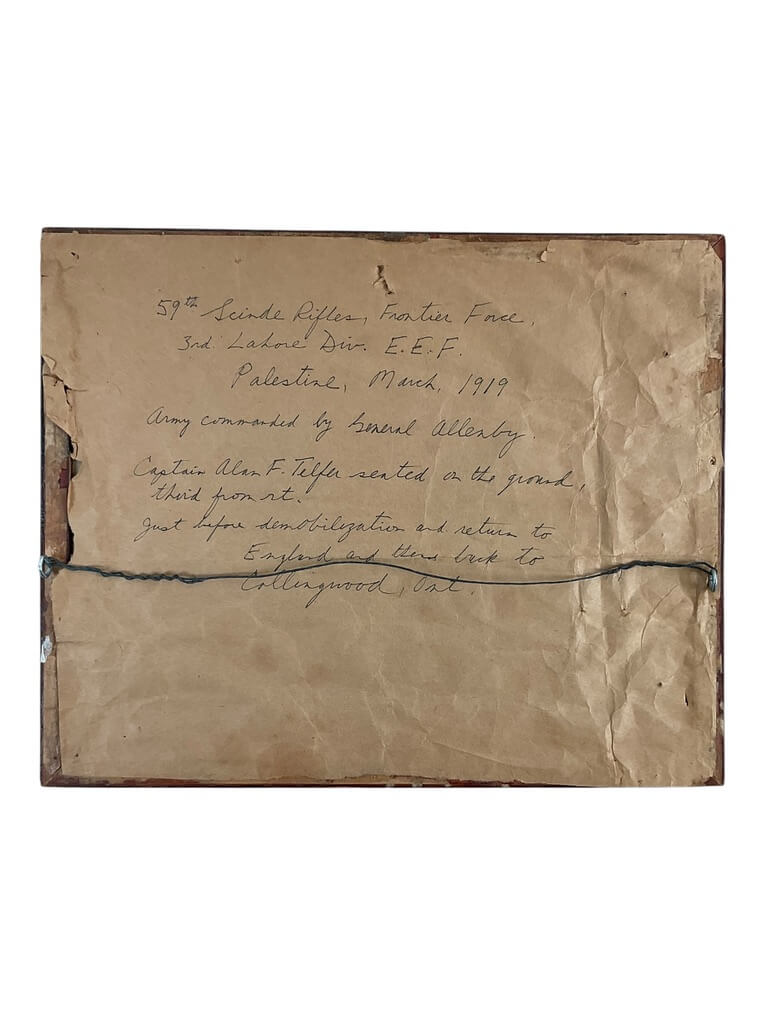 59th Scinde Rifles, Frontier Force,
3rd. Lahore Div. E.E.F.
Palestine, March, 1919
Army commanded by General Allenby.
Captain Alan F. Telfer seated on the ground,
third from rt.
Just before demobilization and return to
England and then back to
Collingwood, Ont.